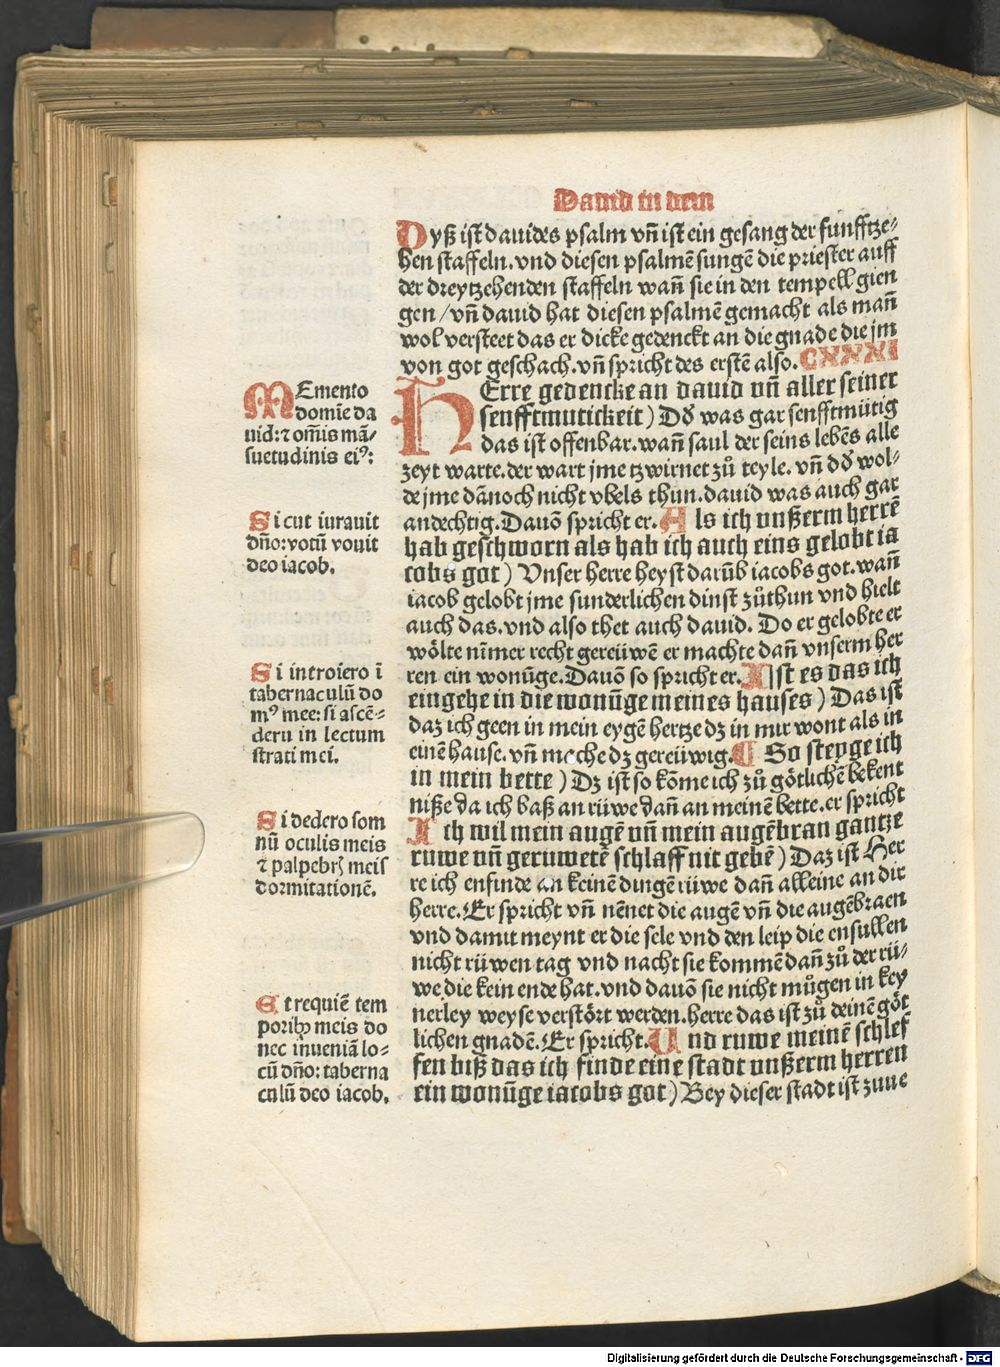 Dauid in dem
Dyß ist dauides psalm vñ ist ein gesang der funfftze-
hen staffeln. vnd diesen psalmē sungē die priester auff
der dreytzehenden staffeln wañ sie in den tempell gien
gen / vñ dauid hat diesen psalmē gemacht als mañ
wol versteet das er dicke gedenckt an die gnade die jm
von got geschach. vñ spricht des erstē also. CXXXI
HErre gedencke an dauid vñ aller seiner
senfftmutickeit) Dd̄ was gar senfftmütig
das ist offenbar. wañ saul der seins lebēs alle
zeyt warte. der wart jme tzwirnet zů teyle. vñ dd̄ wol-
de jme dānoch nicht vbels thun. dauid was auch gar
andechtig. Dauō spricht er. Als ich vnßerm herrē
hab geschworn als hab ich auch eins gelobt ia
cobs got) Vnser herre heyst darūb iacobs got. wañ
iacob gelobt jme sunderlichen dinst zůthun vnd hielt
auch das. vnd also thet auch dauid. Do er gelobte er
wölte nīmer recht gereüwē er machte dañ vnserm her
ren ein wonūge. Dauō so spricht er. Ist es das ich
eingehe in die wonūge meines hauses) Das ist
daz ich geen in mein eygē hertze dz in mir wont als in
einē hause. vñ meche dz gereüwig. ¶ So steyge ich
in mein bette) Dz ist so kōme ich zů götlichē bekent
niße da ich baß an rüwe dañ an meinē bette. er spricht
Ich wil mein augē vñ mein augēbran gantze
ruwe vñ geruwetē schlaff nit gebē) Daz ist Her
re ich enfinde an keinē dingē rüwe dañ alleine an dir
herre. Er spricht vñ nēnet die augē vñ die augēbraen
vnd damit meynt er die sele vnd den leip die ensullen
nicht rüwen tag vnd nacht sie kommē dañ zů der rü-
we die kein ende hat. vnd dauō sie nicht můgen in key
nerley weyse verstört werden. herre das ist zů deinē göt
lichen gnadē. Er spricht. Und ruwe meinē schlef
fen biß das ich finde eine stadt vnßerm herren
ein wonūge iacobs got) Bey dieser stadt ist zuue
MEmento
domīe da
uid: ⁊ om̄is mā-
suetudinis eiꝰ:
Sicut iurauit
dño: votū vouit
deo iacob.
Si introiero ī
tabernaculū do
mꝰ mee: si ascē-
deru in lectum
strati mei.
Si dedero som
nū oculis meis
⁊ palpebrꝭ meis
dormitationē.
Et requiē tem
poribꝫ meis do
nec inueniā lo-
cū dño: taberna
culū deo iacob.
Digitalisierung gefördert durch die Deutsche Forschungsgemeinschaft - DFG